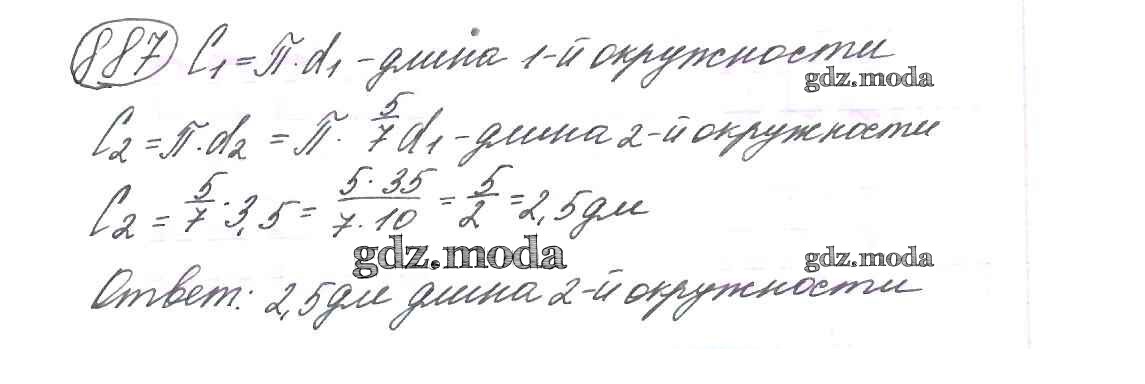 887 C₁ = π·d₁ - длина 1-й окружности
gdz.moda
C₂ = π·d₂ = π· 5/7 d₁ - длина 2-й окружности
C₂ = 5/7 · 3,5 = 5·35/7·10 = 5/2 = 2,5 дм
gdz.moda gdz.moda
Ответ: 2,5 дм длина 2-й окружности